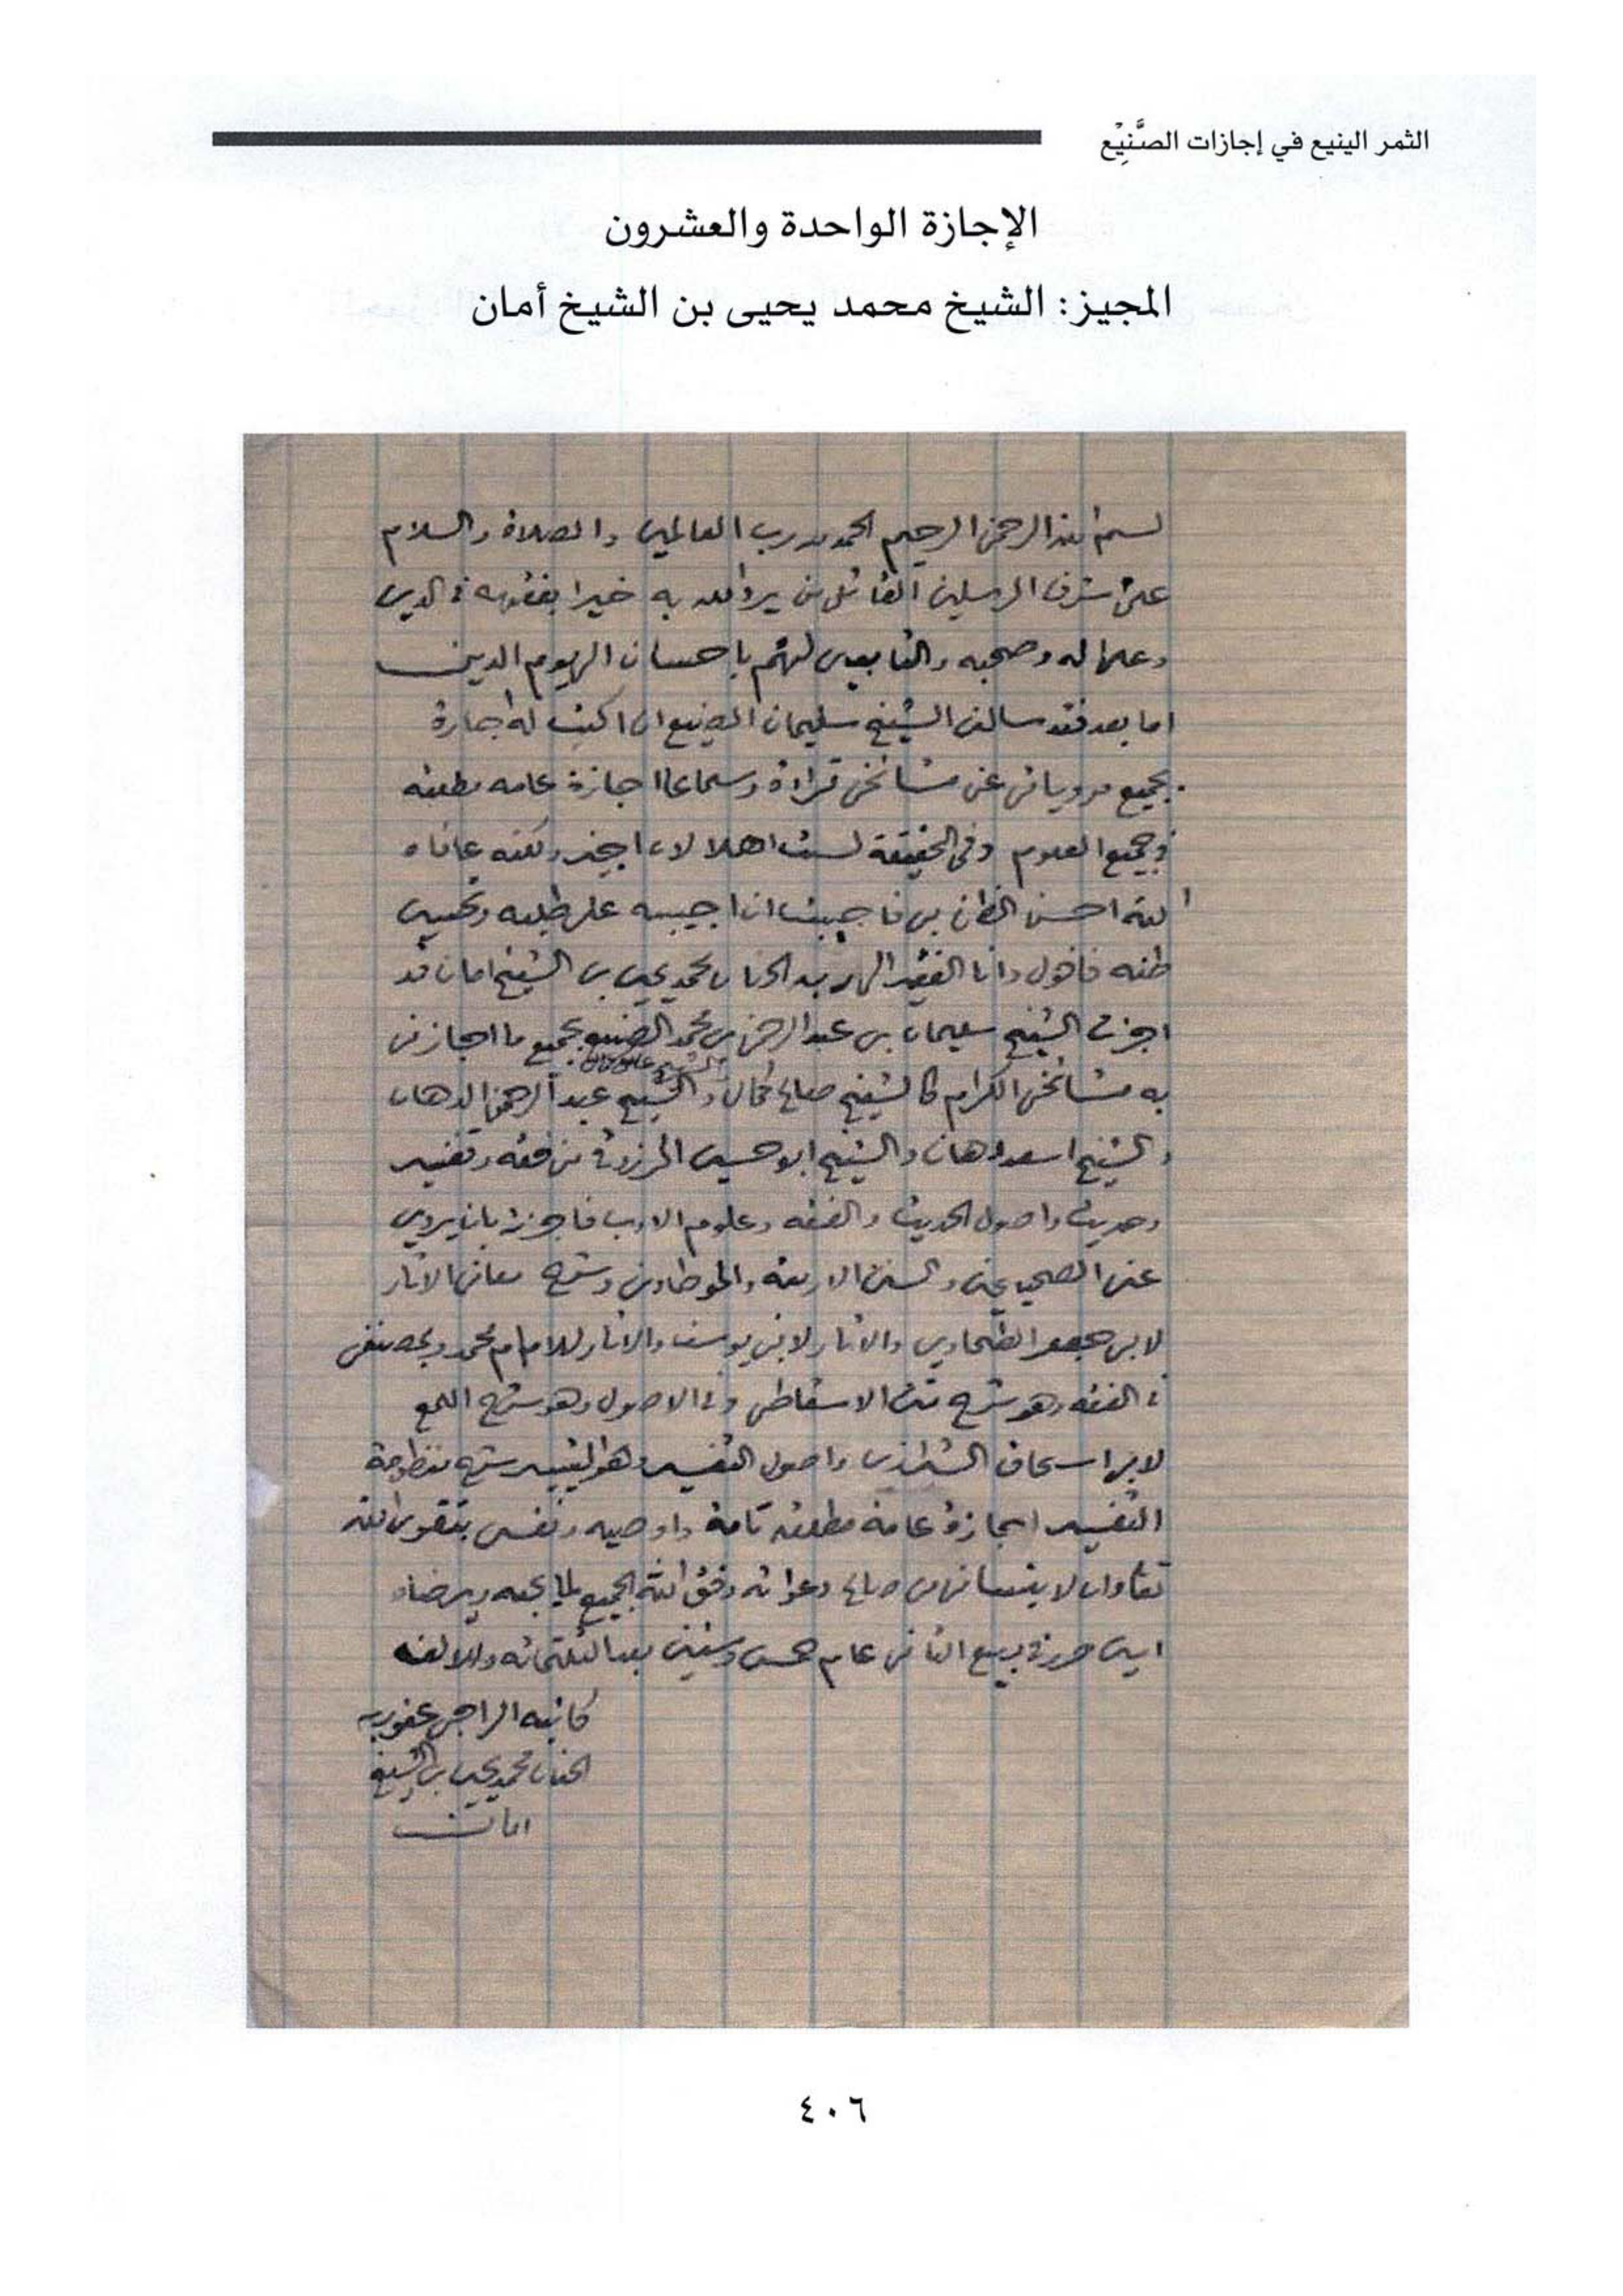 الثمر الينيع في إجازات الصَّنِيْع
الإجازة الواحدة والعشرون
المجيز: الشيخ محمد يحيى بن الشيخ أمان
بسم الله الرحمن الرحيم الحمد لله رب العالمين والصلاة والسلام
على اشرف المرسلين القائل من يرد الله به خيرا يفقهه في الدين
وعلى اله وصحبه والتابعين لهم باحسان الى يوم الدين
اما بعد فقد سالني الشيخ سليمان الصنيع ان اكتب له اجازة
بجميع مروياتي عن مشائخي قراءة وسماعا اجازة عامه مطلقه
في جميع العلوم وفي الحقيقة لست اهلا لان اجيز ولكنه عافاه
الله احسن الظن بي فاحببت ان اجيبه على طلبه وتحسين
ظنه فاقول وانا الفقير الى ربه الحنان محمد يحيى بن الشيخ امان قد
اجزت الشيخ سليمان بن عبد الرحمن بن محمد الصنيع بجميع ما اجازني
والشيخ على كمال
به مشائخي الكرام كالشيخ صالح كمال والشيخ عبد الرحمن الدهان
والشيخ اسعد دهان والشيخ ابو حسين المرزوقي من فقه وتفسير
وحديث واصول الحديث والفقه وعلوم الادب فاجزته بان يروي
عني الصحيحين والسنن الاربعة والموطاوين وشرح معاني الاثار
لابي جعفر الطحاوي والاثار لابي يوسف والاثار للامام محمد وبمصنفي
في الفقه وهو شرح الاسقاطي وفي الاصول وهو شرح اللمع
لابي اسحاق الشيرازي واصول التفسير وهو التيسير شرح منظومة
التفسير اجازة عامة مطلقه تامة واوصيه ونفسي بتقوى الله
تعالى وان لا ينساني من صالح دعواته وفق الله الجميع لما يحبه ويرضاه
امين حرر في ربيع الثاني عام خمس وستين بعد الثلثمائه والالف
كاتبه الراجي عفو ربه
الحنان محمد يحيى بن الشيخ
امان
٤٠٦